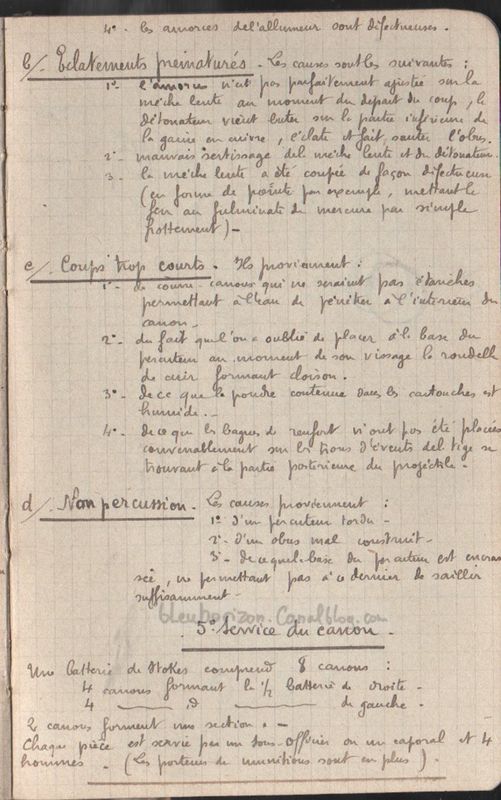 4° - les amorces de l'allumeur sont défectueuses.
b/. Eclatements prématurés. Les causes sont les suivantes :
1°- l'amorce n'est pas parfaitement ajustée sur la
mèche lente au moment du départ du coup, le
détonateur vient buter sur la partie inférieure de
la gaine en cuivre, l'éclate et fait sauter l'obus.
2°- mauvais sertissage de la mèche lente et du détonateur
3- la mèche lente a été coupée de façon défectueuse
(en forme de pointe par exemple, mettant le
feu au fulminate de mercure par simple
frottement) -
c/. Coups trop courts. Ils proviennent :
1°- de couvre-canons qui ne seraient pas étanches
permettant à l'eau de pénétrer à l'intérieur du
canon -
2°- du fait que l'on a oublié de placer à la base du
percuteur au moment de son vissage la rondelle
de cuir formant cloison.
3°- de ce que la poudre contenue dans les cartouches est
humide. -
4°- de ce que les bagues de renfort n'ont pas été placées
convenablement sur les trous d'évents de la tige se
trouvant à la partie postérieure du projectile -
d/. Non percussion. Les causes proviennent :
1° d'un percuteur tordu -
2°- d'un obus mal construit -
3°- de ce que la base du percuteur est encras
sée, ne permettant pas à ce dernier de saillir
suffisamment -
bleuhorizon.Canalblog.com
5° Service du canon.
Une batterie de Stokes comprend 8 canons :
4 canons formant la 1/2 batterie de droite -
4 ——— id ——— de gauche.
2 canons forment une section. -
Chaque pièce est servie par un sous-officier ou un caporal et 4
hommes. (Les porteurs de munitions sont en plus).